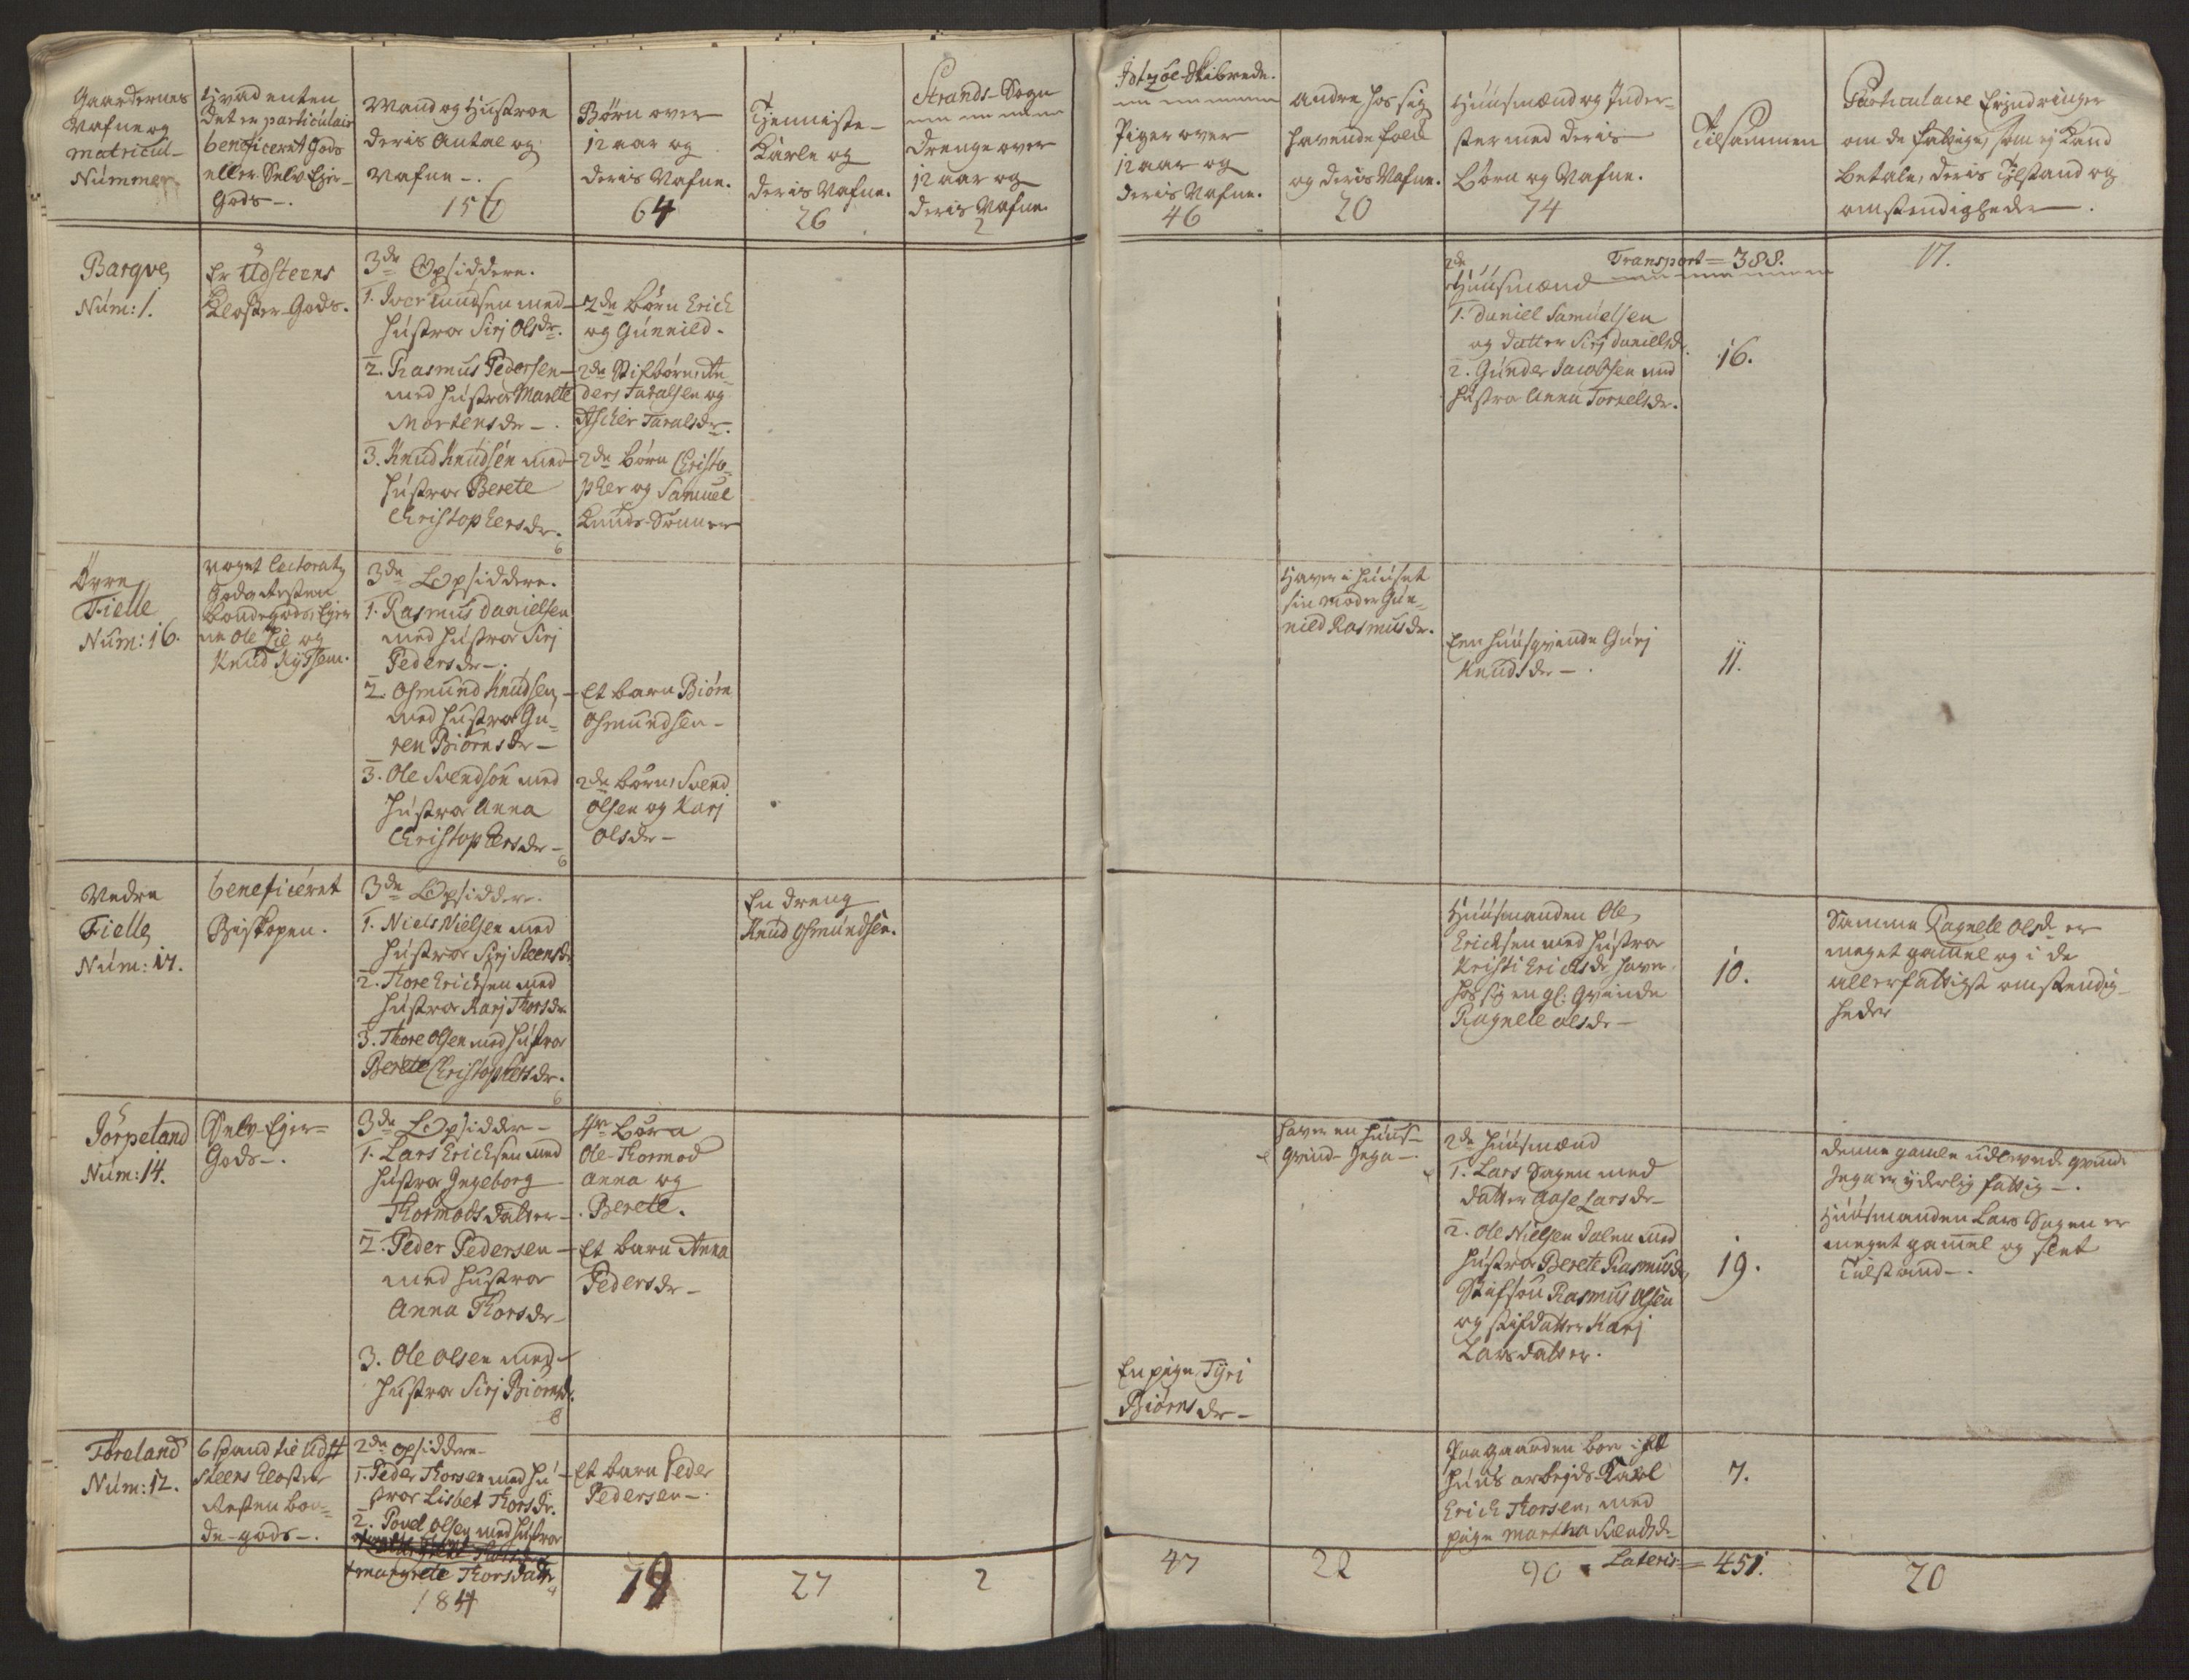 Gaardernes
Nafne og
Matricul-
Nummer
Hvad enten
det er particulair
beneficeret Gods
eller Selv Ejer-
Gods-.
Mand og Hustroe
deris Antal og
Nafne-.
156
Børn over
12 aar og
deris Nafne.
64
Tjenniste-
Karle og
deris Nafne.
26
Strands-Sogn
Drenge over
12 aar og
deris Nafne.
2
Piger over
12 aar og
deris Nafne.
46
Andre hos sig
havende folck
og deris Nafne.
20
Huusmænd og Inder-
ster med deris
Børn og Nafne.
74
Tilsammen
Particulaire Erindringer
om de fattige, som ej kand
betale, deris Tilstand og
omstendigheder.
Barqve
Num: 1.
Er Udsteens
Closter-Gods.
3de Opsiddere.
1. Iver Knudsen med
Hustroe Sirj Olsdr.
2. Rasmus Pedersen-
med Hustroe Marete
Mortensdr-.
3. Knud Knudsen med
Hustroe Berete
Christophersdr.
6
2de Børn Erich
og Gunnild.
2de Stifbørn, An-
ders Taralsen og
Taralsdr.
2de Børn Christo-
pher og Samuel
Knuds-Sønner
Transport = 388.
2de
Huusmænd
1. Daniel Samuelsen
og datter Sirj Danielsdr.
2. Gunder Jacobsen med
Hustroe Anna Torkelsdr.
16.
17.
Øvre
Fielle
Num: 16.
noget Lectorats
Gods Resten
Bondegods, Ejer
ne Ole Lie og
Knud
3de Opsiddere.
1. Rasmus Danielsen
med Hustroe Sirj
Pedersdr-.
2. Osmund Knudsen,-
med Hustroe Gu-
ren Biørnsdr-
3. Ole Svendsøn med
Hustroe Anna
Christophersdr-
6
Et barn Biørn
Osmundsen-
2de Børn, Svend
Olsen og Karj
Olsdr-
Haver i Huuset
sin Moder Gun-
nild Rasmusdr.
Een Huusqvinde Gurj
Knudsdr-.
11.
Nedre
Fielle
Num: 17.
beneficeret
Biskopen.
3de Opsiddere.
1. Niels Nielsen med
Hustroe Sirj Steensdr
2. Thore Erichsen med
Hustroe Karj Thorsdr
3. Thore Olsen med Hustroe
Berete Christophersdr.
6
En dreng
Knud Osmundsen.
Huusmanden Ole
Erichsen med Hustroe
Kristi Erichsdr, haver
hos sig en gl: Qvinde
Ragnele Olsdr-
10.
Samme Ragnele Olsdr er
meget gammel og i de
allerfattigst omstendig-
heder
Jørpeland
Num: 14.
Selv-Ejer=
Gods-.
3de Opsidder-
1. Lars Erichsen med
Hustroe Ingeborg
Thormodsdatter-
2. Peder Pedersen-
med Hustroe
Anna Thorsdr-
3. Ole Olsen med-
Hustroe Sirj Biørnsdr.
8
4re Børn
Ole Thormod
Anna og
Berete.
Et barn Anna
Pedersdr-
En pige Tyri
Biørnsdr-
Haver en Huus-
qvinde Inga-.
2de Huusmænd
1. Lars Sagen med
datter Aase Larsdr-
2. Ole Nielsen Dalen med
Hustroe Berete Rasmusdr,
Stifsøn Rasmus Olsen
og stifdatter Karj
Larsdatter.
19.
Denne gamle udlevede qvinde
Inga er yderlig fattig-.
Huusmanden Lars Sagen er
meget gammel og slet
Tilstand-.
Toraland
Num: 12.
6 spand til Udst
steens Closter
Resten bon-
de-gods-.
2de opsiddere-
1. Peder Thorsen med Hu-
stroe Lisbet Thorsdr.
2. Povel Olsen med Hustroe
Margrete Thorsdatr
4
184
Et barn Peder
Pedersen-.
79
27
2
47
22
Paa gaarden boer i et
huus arbejds-Karl
Erich Thorsen, med
pige Martha Svendsdr
7.
90
Lateris = 451.
20